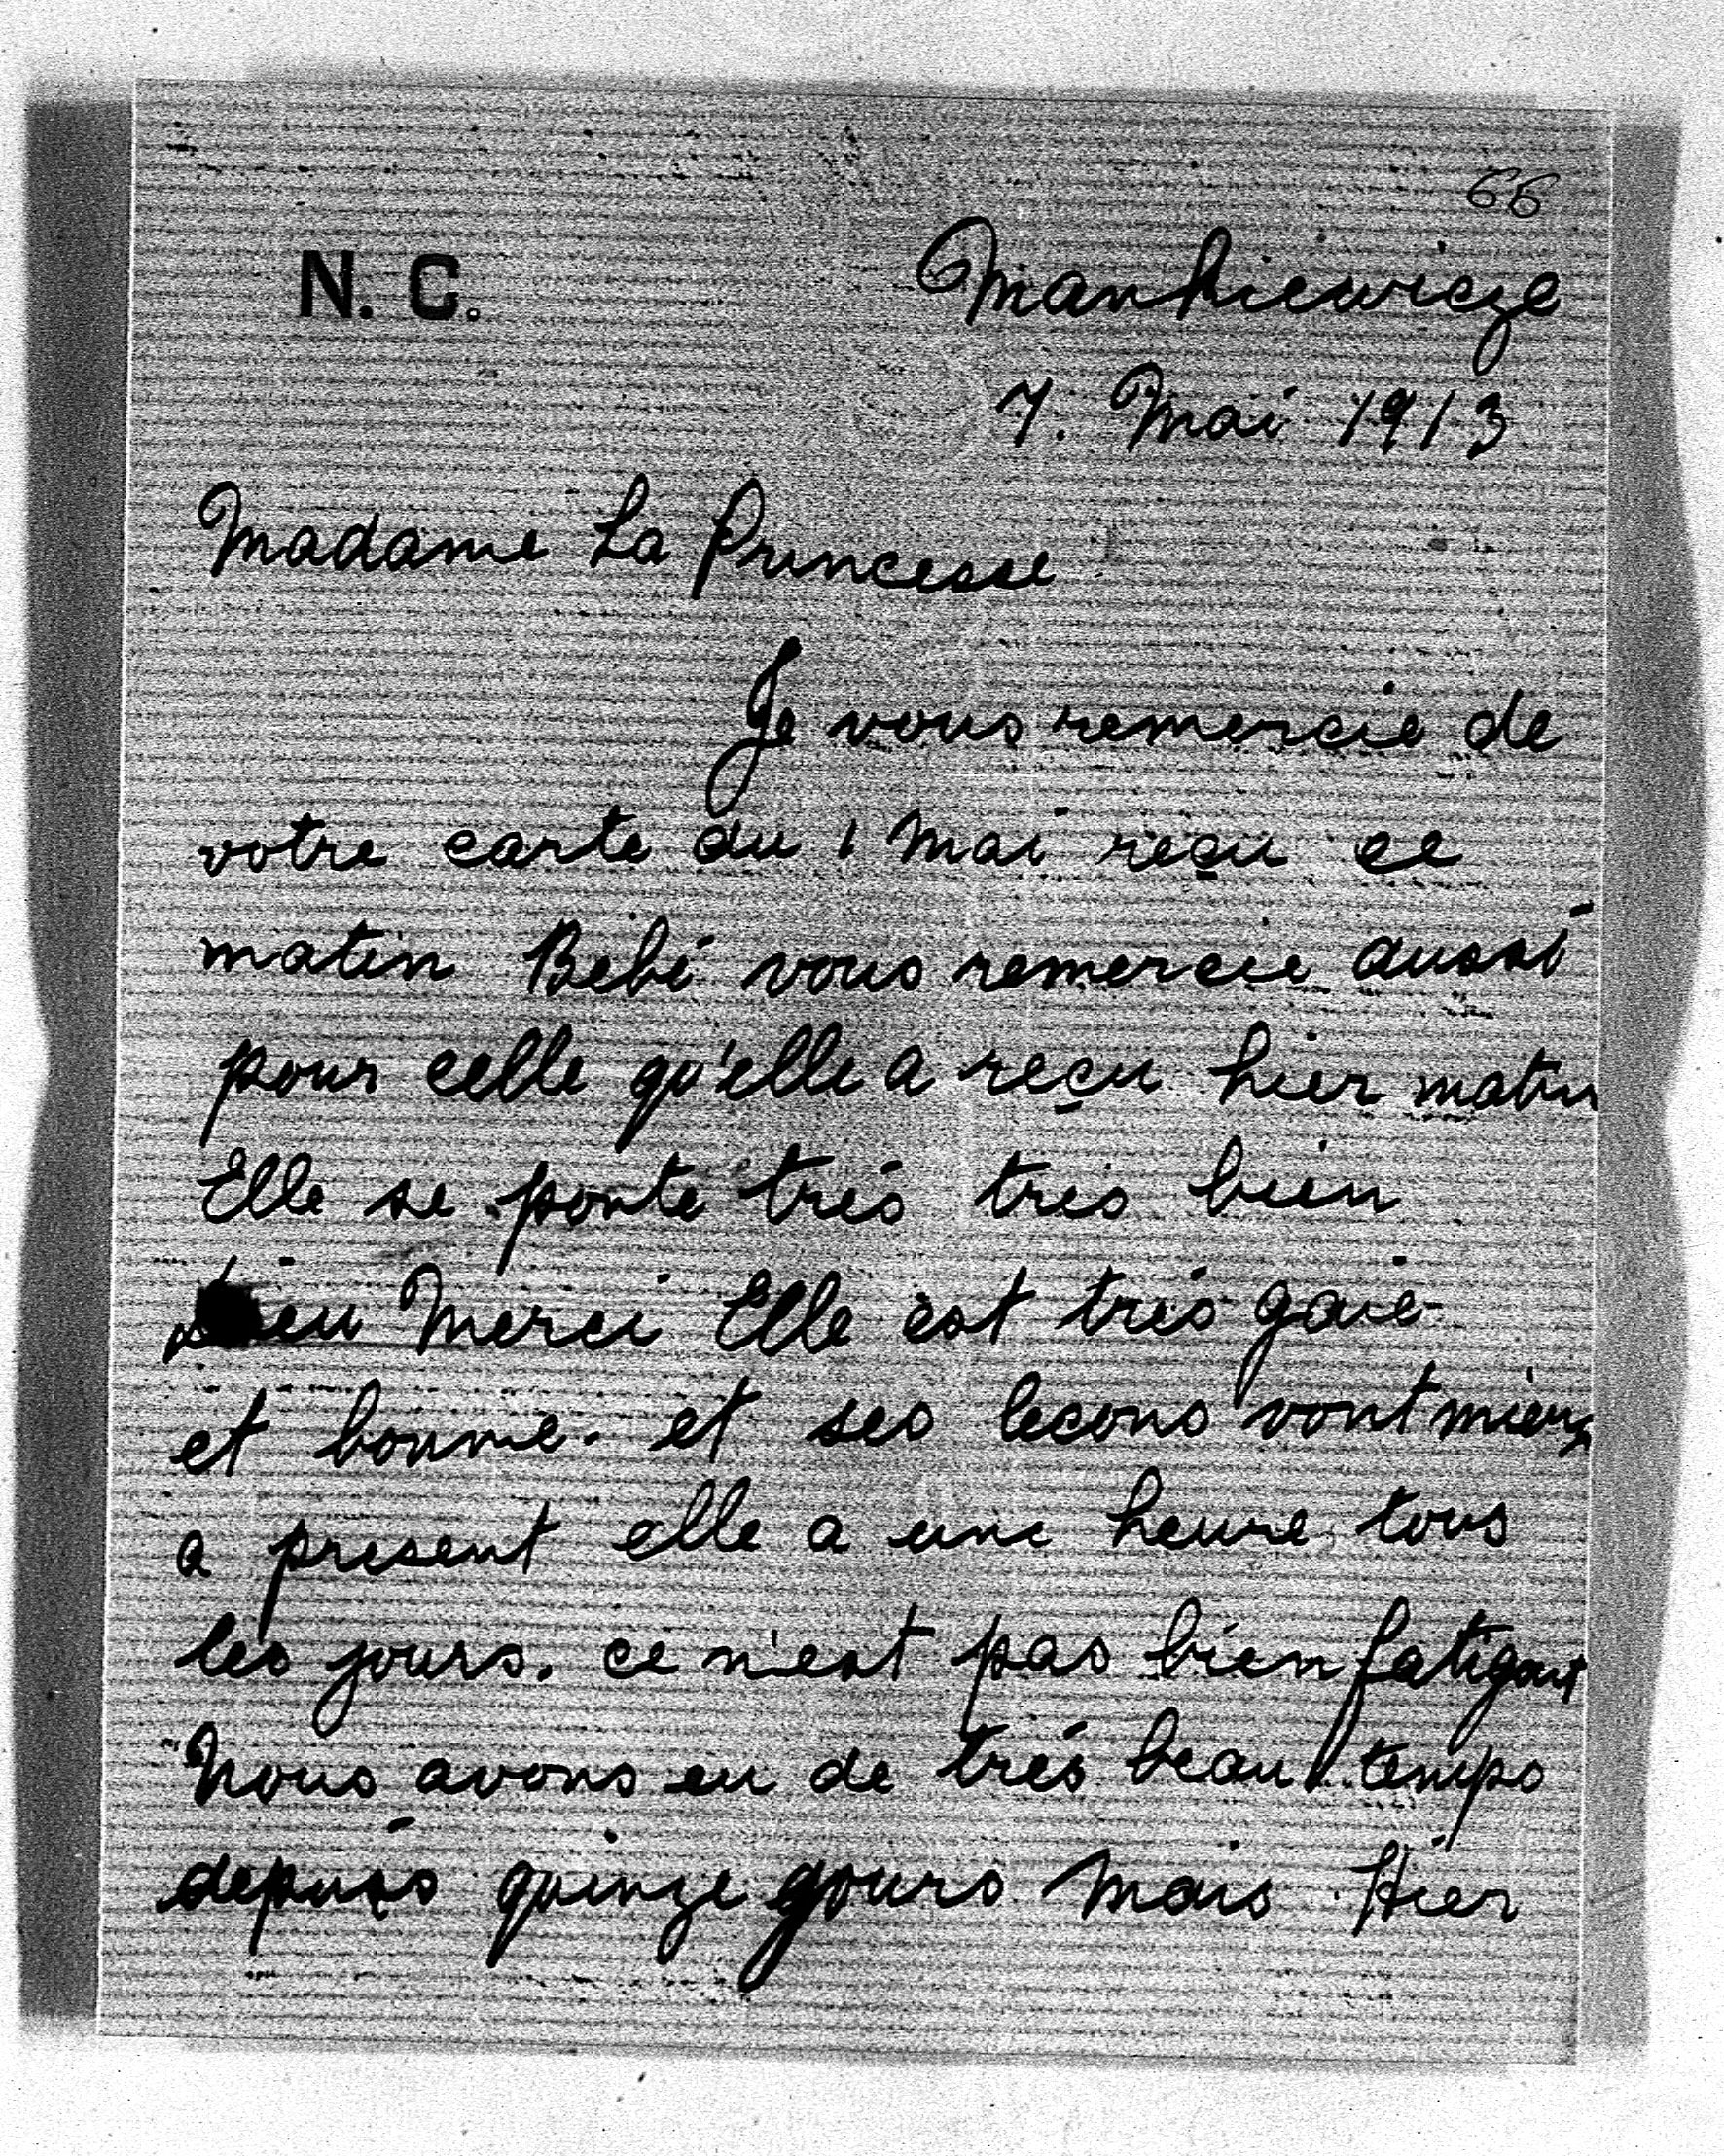 66
N. C.
Mankiewicze
7. Mai 1913
Madame La Princesse
Je vous remercie de
votre carte du 1 Mai reçu ce
matin Bebé vous remercie aussi
pour celle qu'elle a reçu hier matin
Elle se porte trés trés bien
Dieu Merci Elle est trés gaie
et bonne. et ses lecons vont mieux
a present elle a une heure tous
les jours. ce n'est pas bien fatigant
Nous avons eu de trés beau temps
depuis quinze jours Mais Hier